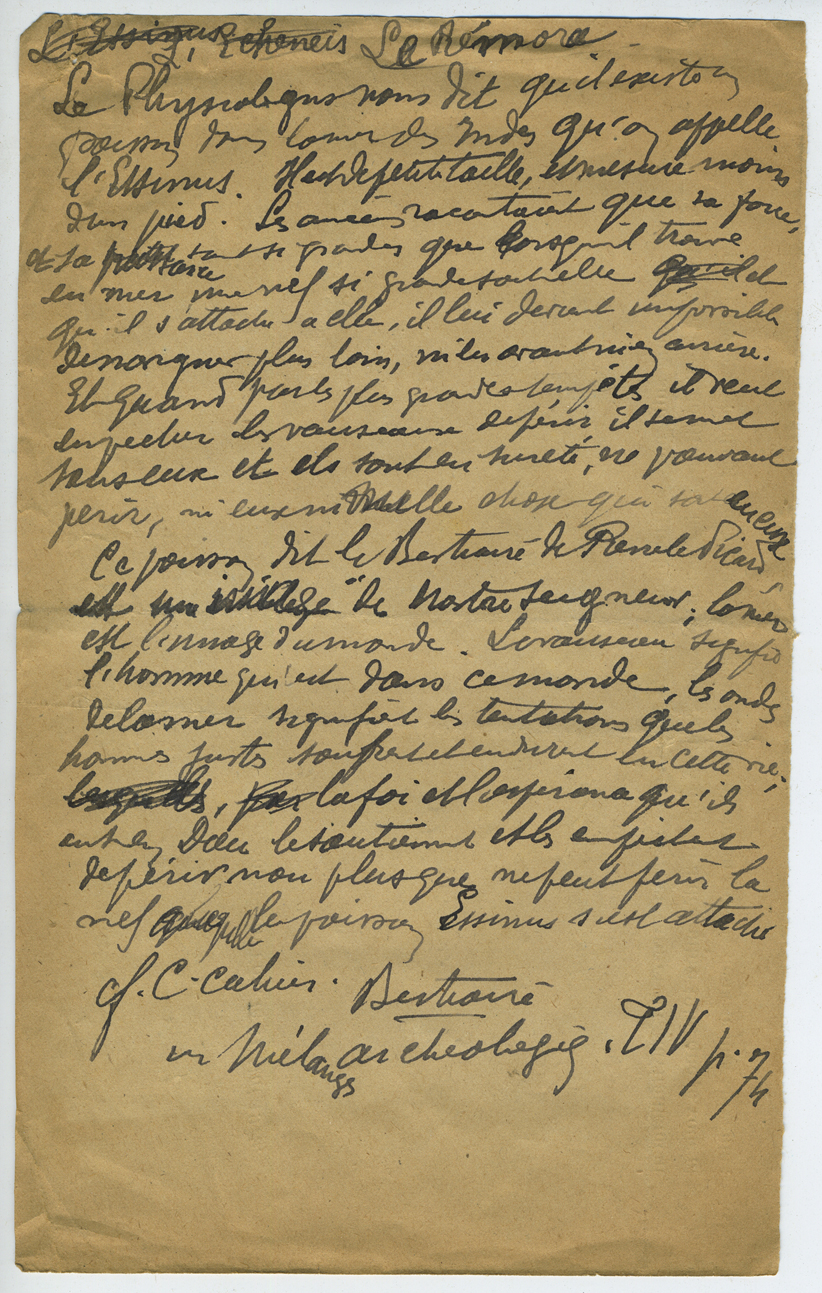 L'Essinus L'Echeneis Le Rémora
Le Physiologus nous dit qu'il existe un
poisson dans la mer des Indes qu'on appelle
l'Essinus. Il est de petite taille, et mesure moins
d'un pied. Les anciens racontaient que sa force,
et sa puissance sont si grandes que lorsqu'il trouve
en mer une nef si grande soit elle et
qu'il s'attache a elle, il lui devient impossible
de naviguer plus loin, ni en avant ni en arrière.
Et quand par les plus grandes tempêtes il veut
empecher les vaisseaux de périr il se met
sous eux et ils sont en sureté, ne pouvant
périr, ni eux ni nulle chose qui soit en eux
Ce poisson, dit le Bestiaire de Pierre le Picard
est une image de Nostre Seigneur; la mer
est l'image du monde. Le vaisseau signifie
l'homme qui est dans ce monde, les ondes
de la mer signifient les tentations que les
hommes justes souffrent et endurent en cette vie;
lesquels, par la foi et l'espérance qu'ils
ont en Dieu le soutiennent et les empêchent
de périr non plus que ne peut périr la
nef à laquelle le poisson Essinus s'est attaché
cf. C. Cahier. Bestiaire
in Mélanges archeologiq. T IV p. 74